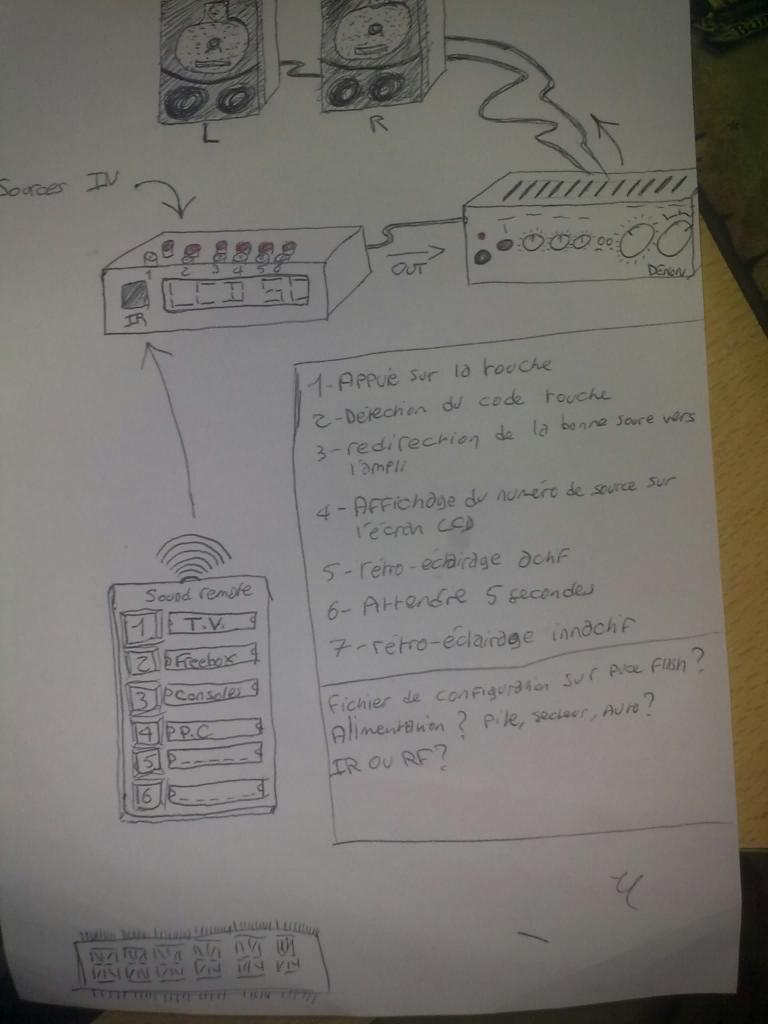 L
R
Sources IN
1 2 3 4 5 6
OUT
DENON
IR
1- Appuie sur la touche
2- Détection du code touche
3- redirection de la bonne soure vers
l'ampli
4- Affichage du numéro de source sur
l'écran LCD
5- rétro-éclairage actif
6- Attendre 5 secondes
7- rétro-éclairage innactif
Sound remote
1 T.V.
2 Freebox
3 Consoles
4 P.C
5
6
Fichier de configuration sur puce flash?
Alimentation? Pile, secteur, Auto?
IR OU RF?